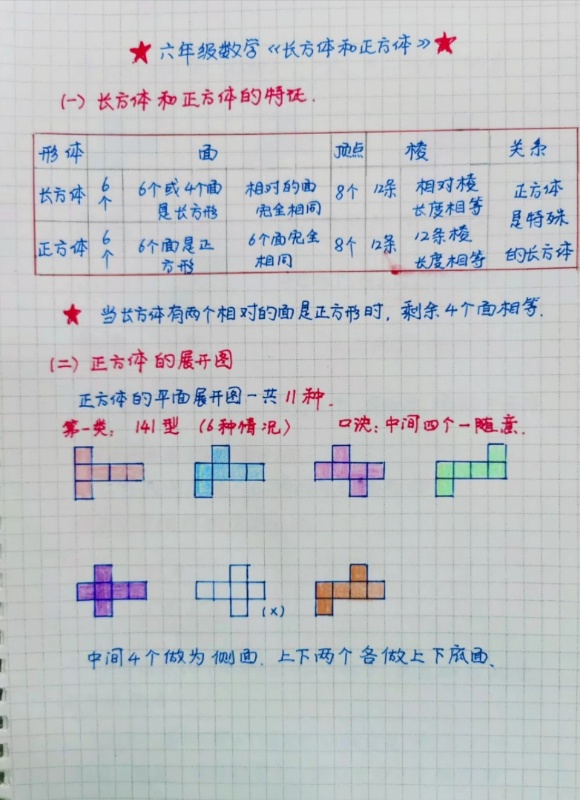 ★ 六年级数学《长方体和正方体》★
(一) 长方体和正方体的特征.
形体 面 顶点 棱 关系
长方体 6个 6个或4个面是长方形 相对的面完全相同 8个 12条 相对棱长度相等 正方体是特殊的长方体
正方体 6个 6个面是正方形 6个面完全相同 8个 12条 12条棱长度相等
★ 当长方体有两个相对的面是正方形时, 剩余4个面相等.
(二) 正方体的展开图
正方体的平面展开图一共11种.
第一类: 141型 (6种情况) 口决: 中间四个一随意.
(×)
中间4个做为侧面. 上下两个各做上下底面.